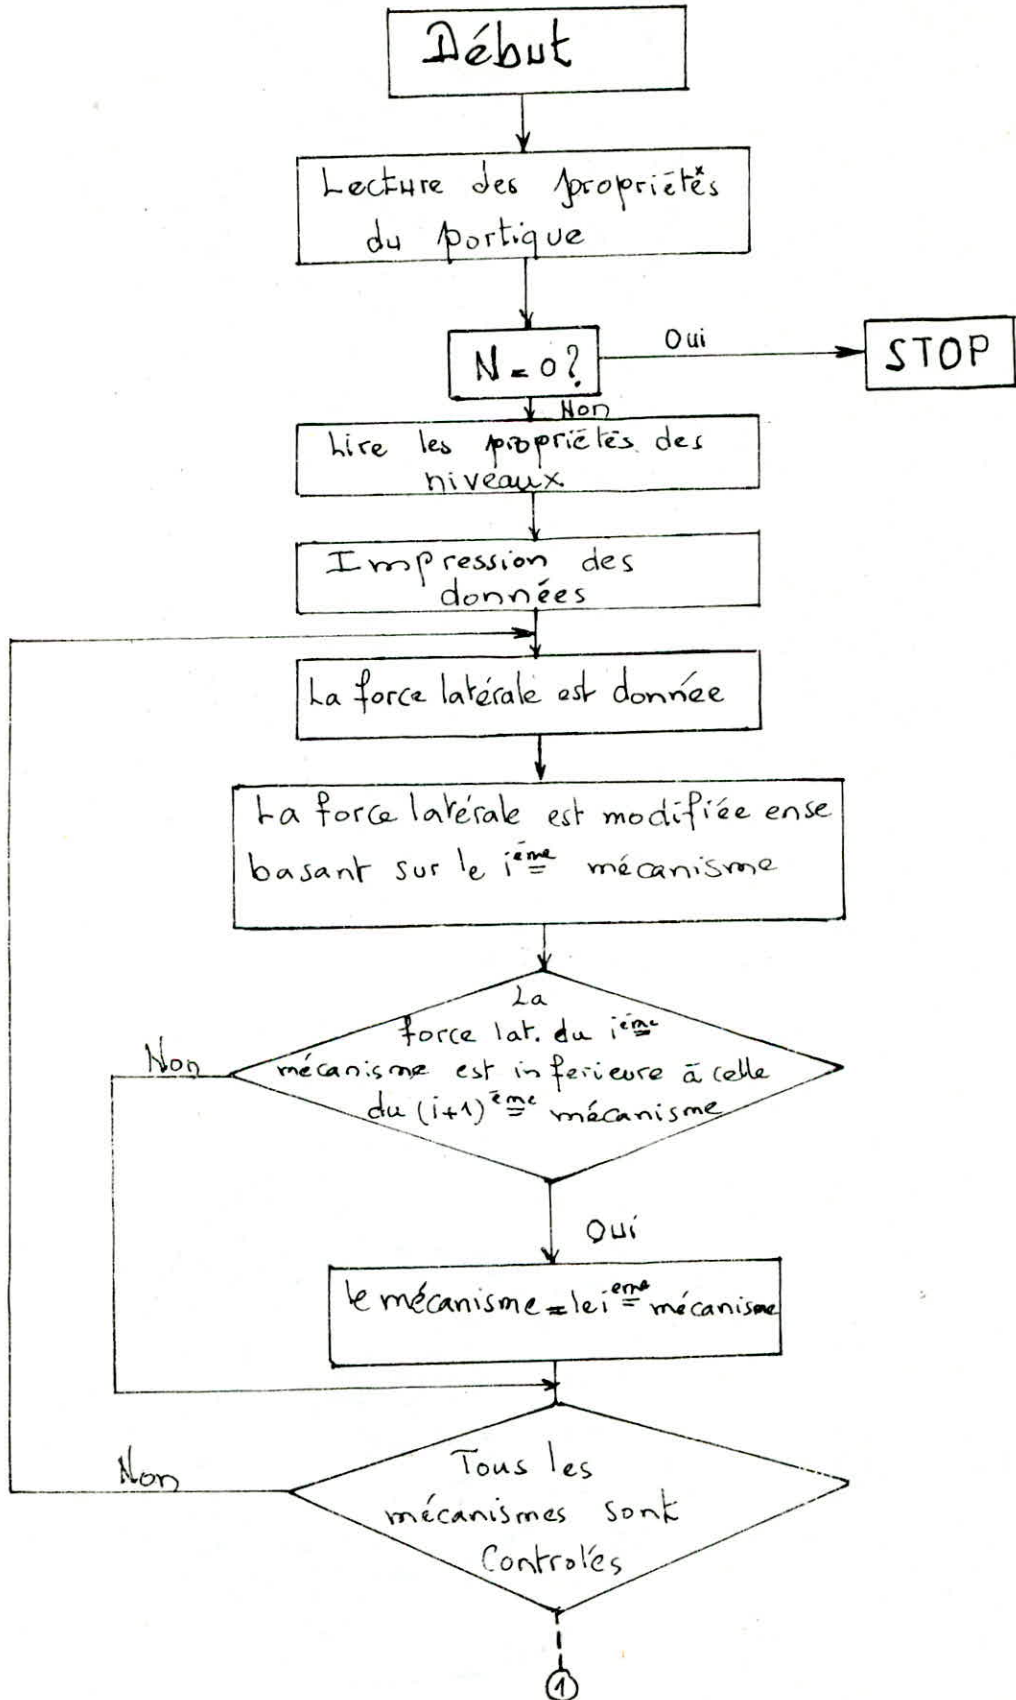 Début
Lecture des propriétés
du portique
N = 0?
Oui
STOP
Non
Lire les propriétés des
niveaux
Impression des
données
La force latérale est donnée
La force latérale est modifiée ense
basant sur le ième mécanisme
La
force lat. du ième
mécanisme est inferieure à celle
du (i+1)ème mécanisme
Non
Oui
le mécanisme = le ième mécanisme
Tous les
mécanismes sont
Controlés
Non
1